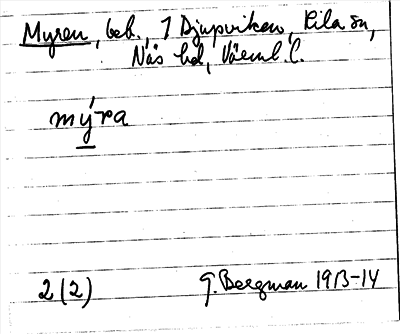 Myren, beb., 1 Djupviken, Kila sn,
Näs hd, Värml. l.
mýra
2(2) G. Bergman 1913-14